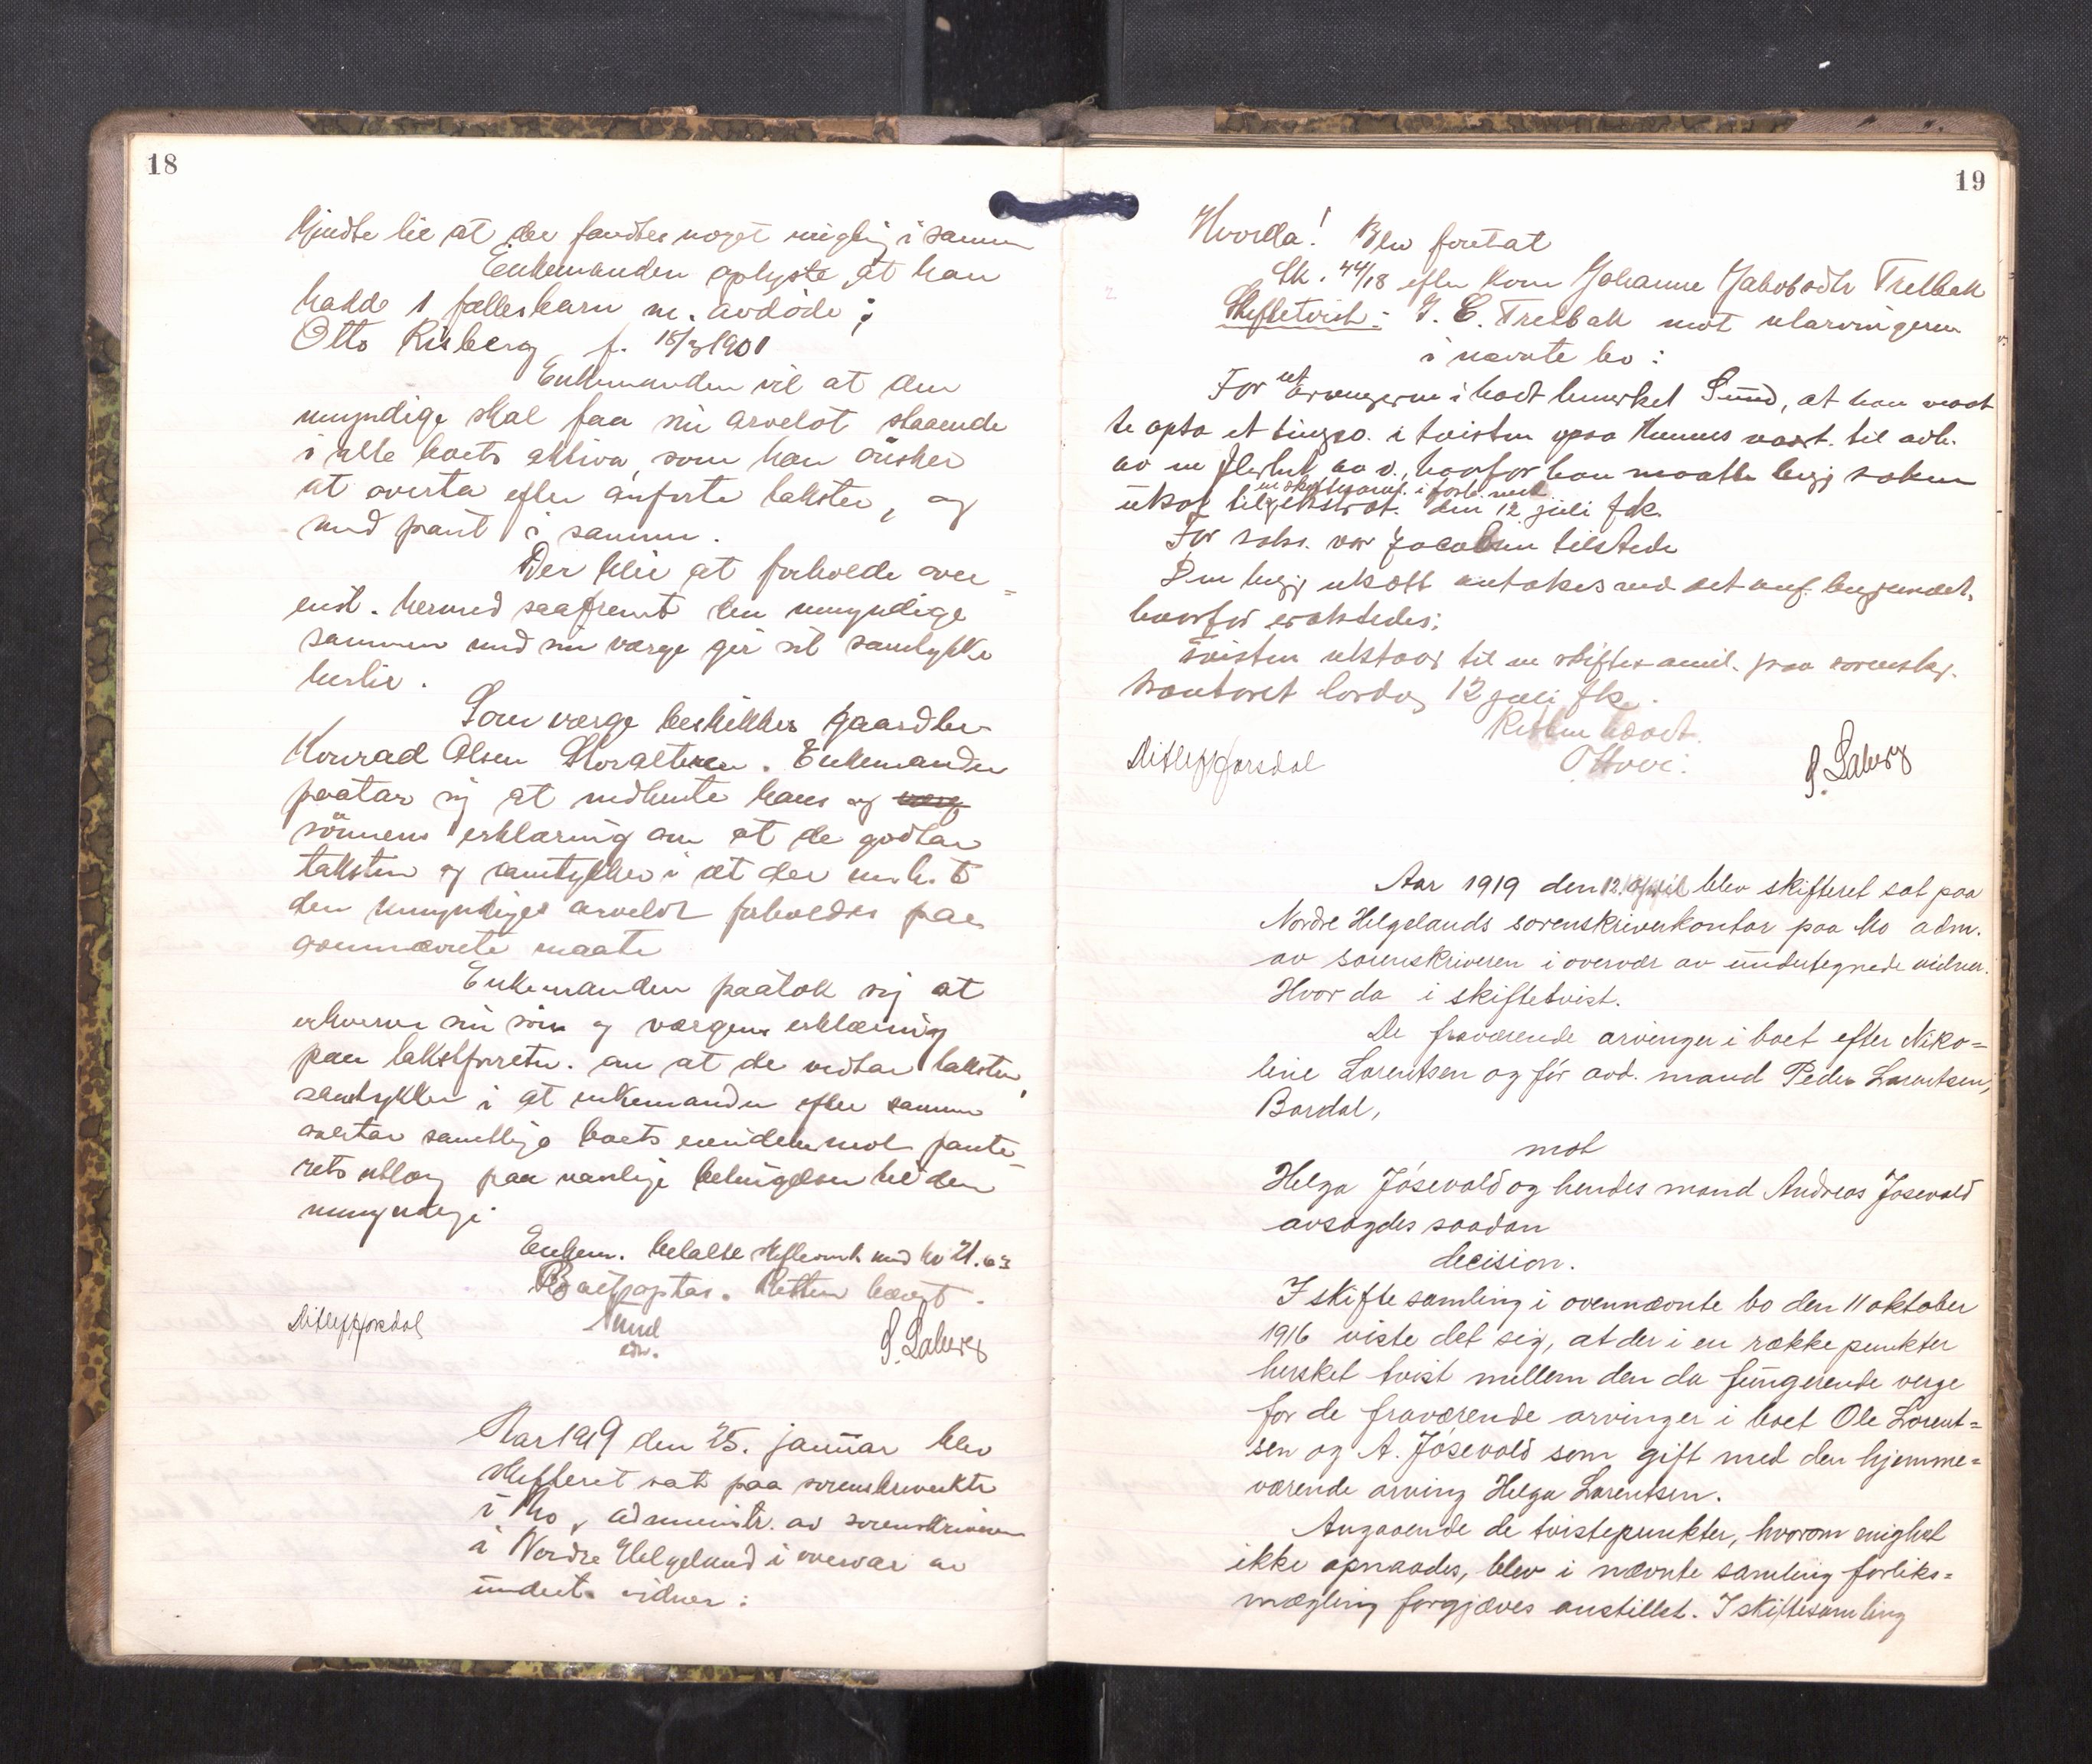 18
at der fandtes noget i samme
Enkemanden oplyste at han
hadde 1 fællesbarn m. avdöde:
Otto Risberg f. 18/3 1901
Enkemanden vil at den
umyndige skal faa sin arvelot staaende
i alle boets aktiva, som han önsker
at overta efter anförte takster, og
med pant i samme.
Der blir at forholde over=
enst. hermed saafremt den umyndige
sammen med sin værge gir sit samtykke
hertil.
Som værge beskikkes gaardbr
Konrad Olsen Storalteren. Enkemanden
paatar sig at indhente hans og værg
sönnens erklæring om at de godtar
taksten og samtykker i at der m.h.t.
den umyndiges arvelot forholdes paa
ovennævnte maate
Enkemanden paatok sig at
erhverve sin sön og værgens erklæring
paa takstforretn. om at de vedtar taksten,
samtykker i at enkemanden efter samme
overtar samtlige boets eiendeler mot pante-
rets utlæg paa vanlige betingelser til den
umyndige.
Enkem. betalte skifteomk. med kr 21.63
Boet optas. Retten hævet.
Ditlef Forsdal
Sund
edv.
P. Laberg
Aar 1919 den 25. januar blev
skifteret sat paa sorenskriverktr
i Mo, administr. av sorenskriveren
i Nordre Helgeland i overvær av
undert. vidner:
19
Hvorda! Blev foretat
Sk. 44/18 efter kone Johanne Jakobsdtr Tretbak
Skiftetvist: J. E. Tretbak mot utarvingerne
i nævnte bo:
For ut arvingerne i boet bemerket Sund, at han maat
te opta et tingsv. i tvisten paa Hemnes til
av v., hvorfor han maatte begj saken
m skiftesaml. i forb. med
utsat til den 12 juli fk.
For saks. var Jacobsen tilstede
Den begj utsætt antokes ved det anf. begrundet,
hvorfor eraktedes:
Tvisten utstaar til en skiftesaml. paa sorenskr.
kontoret lördag 12 juli fk.
Retten hævet.
Ditlef Forsdal
O Hove.
P. Laberg
Aar 1919 den 12. april blev skifteret sat paa
Nordre Helgelands sorenskriverkontor paa Mo adm.
av sorenskriveren i overvær av undertegnede vidner.
Hvor da i skiftetvist.
De fraværende arvinger i boet efter Niko=
line Lorentsen og før avd. mand Peder Lorentsen,
Bardal,
mot
Helga Jösevold og hendes mand Andreas Jösevold
avsagdes saadan
decision.
I skiftesamling i ovennævnte bo den 11 oktober
1916 viste det sig, at der i en række punkter
hersket tvist mellem den da fungerende verge
for de fraværende arvinger i boet Ole Lorent=
sen og A. Jösevold som gift med den hjemme=
værende arving Helga Lorentsen.
Angaaende de tvistepunkter, hvorom enighet
ikke opnaades, blev i nævnte samling forliks=
mægling forgjæves anstillet. I skiftesamling